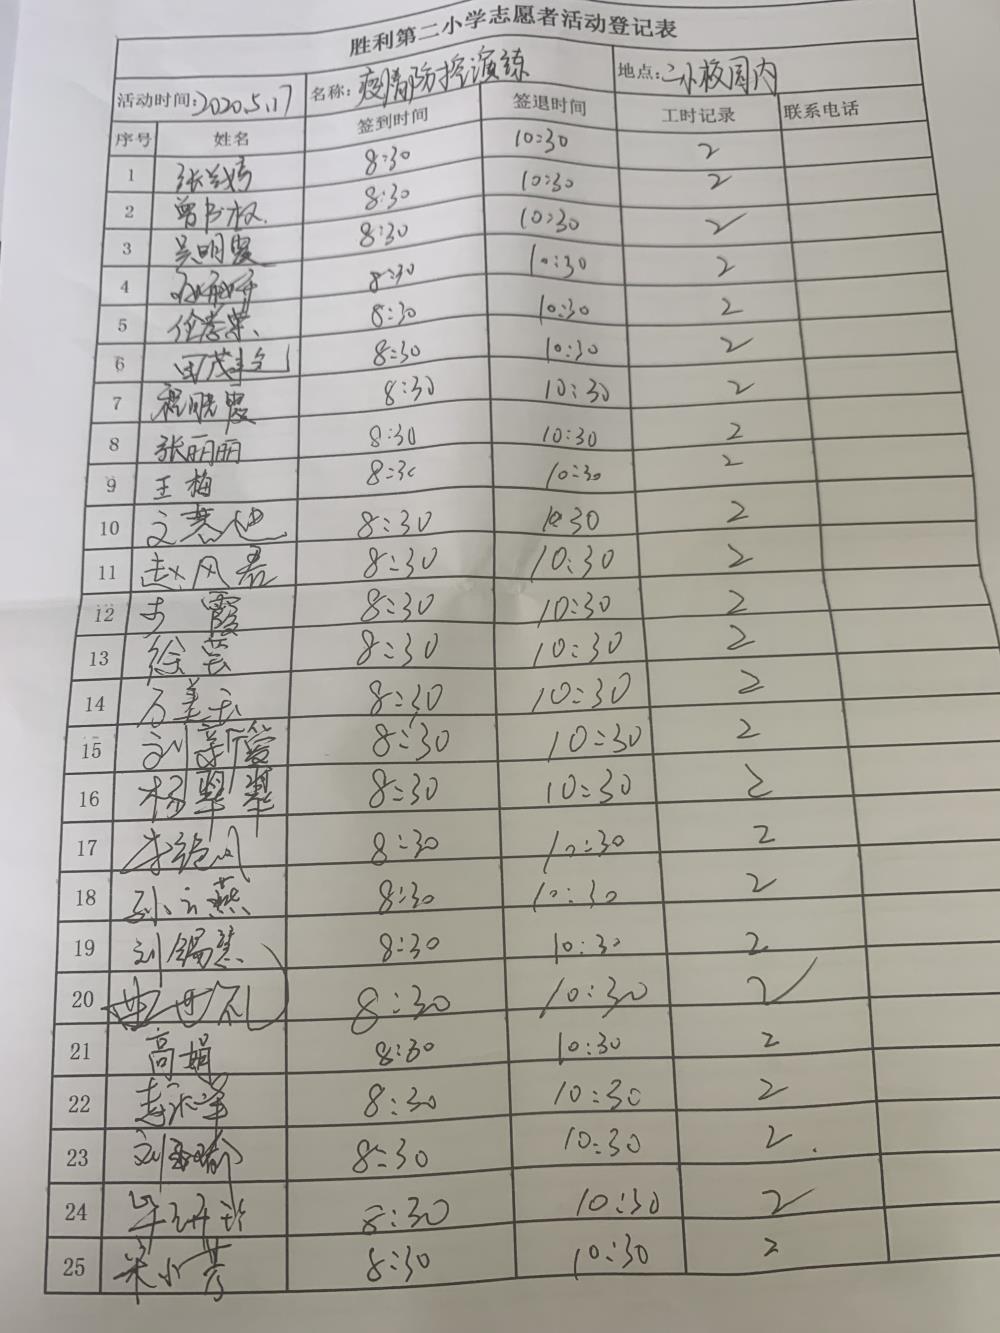 胜利第二小学志愿者活动登记表
活动时间:2020.5.17 名称:疫情防控演练 地点:二小校园内
序号 姓名 签到时间 签退时间 工时记录 联系电话
1 张 8:30 10:30 2
2 曾 权 8:30 10:30 2
3 吴明霞 8:30 10:30 2
4 8:30 10:30 2
5 任 荣 8:30 10:30 2
6 田茂 8:30 10:30 2
7 程晓霞 8:30 10:30 2
8 张丽丽 8:30 10:30 2
9 王梅 8:30 10:30 2
10 文 8:30 10:30 2
11 赵风 8:30 10:30 2
12 步霞 8:30 10:30 2
13 徐芸 8:30 10:30 2
14 万美玉 8:30 10:30 2
15 刘 8:30 10:30 2
16 杨翠翠 8:30 10:30 2
17 李艳风 8:30 10:30 2
18 孙云燕 8:30 10:30 2
19 刘锡慧 8:30 10:30 2
20 曲世礼 8:30 10:30 2
21 高娟 8:30 10:30 2
22 8:30 10:30 2
23 刘 8:30 10:30 2
24 8:30 10:30 2
25 梁小芳 8:30 10:30 2